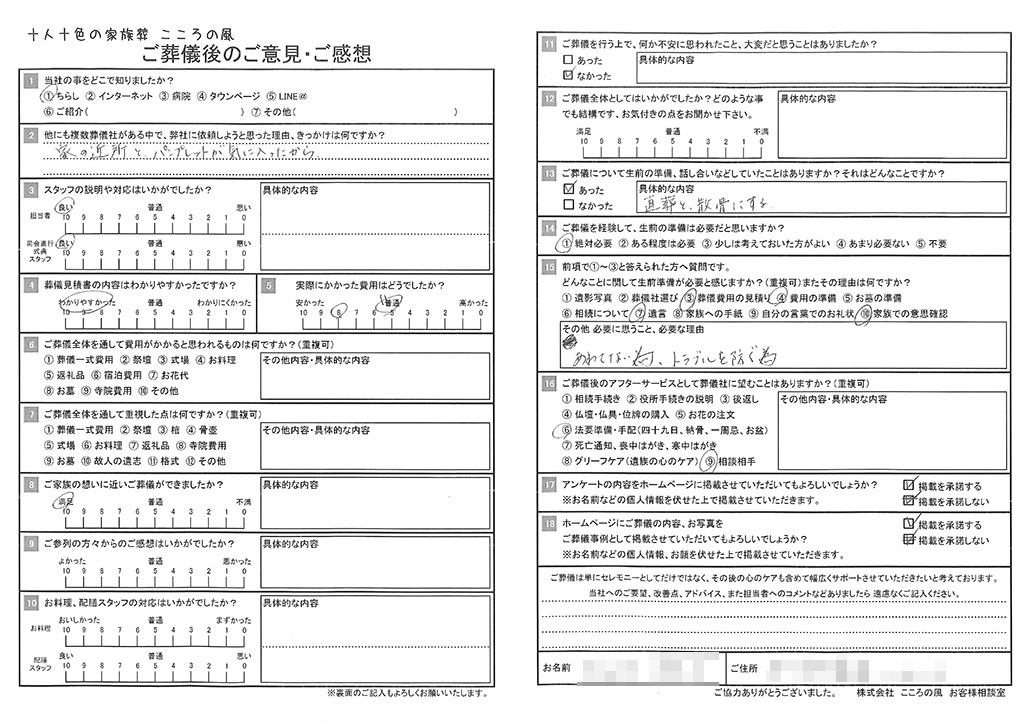 十人十色の家族葬 こころの風
ご葬儀後のご意見・ご感想
1 当社の事をどこで知りましたか？
①ちらし ② インターネット ③ 病院 ④ タウンページ ⑤ LINE@
⑥ ご紹介( ) ⑦ その他( )
2 他にも複数葬儀社がある中で、弊社に依頼しようと思った理由、きっかけは何ですか？
家の近所と、パンフレットが気に入ったから、
3 スタッフの説明や対応はいかがでしたか？
具体的な内容
良い 普通 悪い
担当者 10 9 8 7 6 5 4 3 2 1 0
司会進行 式典 スタッフ
良い 普通 悪い
10 9 8 7 6 5 4 3 2 1 0
4 葬儀見積書の内容はわかりやすかったですか？
わかりやすかった 普通 わかりにくかった
10 9 8 7 6 5 4 3 2 1 0
5 実際にかかった費用はどうでしたか？
安かった 普通 高かった
10 9 8 7 6 5 4 3 2 1 0
6 ご葬儀全体を通して費用がかかると思われるものは何ですか？(重複可)
① 葬儀一式費用 ② 祭壇 ③ 式場 ④ お料理
⑤ 返礼品 ⑥ 宿泊費用 ⑦ お花代
⑧ お墓 ⑨ 寺院費用 ⑩ その他
その他内容・具体的な内容
7 ご葬儀全体を通して重視した点は何ですか？(重複可)
① 葬儀一式費用 ② 祭壇 ③ 棺 ④ 骨壷
⑤ 式場 ⑥ お料理 ⑦ 返礼品 ⑧ 寺院費用
⑨ お墓 ⑩ 故人の遺志 ⑪ 格式 ⑫ その他
その他内容・具体的な内容
8 ご家族の想いに近いご葬儀ができましたか？
満足 普通 不満
10 9 8 7 6 5 4 3 2 1 0
9 ご参列の方々からのご感想はいかがでしたか？
よかった 普通 悪かった
10 9 8 7 6 5 4 3 2 1 0
具体的な内容
10 お料理、配膳スタッフの対応はいかがでしたか？
おいしかった 普通 まずかった
お料理 10 9 8 7 6 5 4 3 2 1 0
良い 普通 悪い
配膳 スタッフ 10 9 8 7 6 5 4 3 2 1 0
具体的な内容
※裏面のご記入もよろしくお願いいたします。
11 ご葬儀を行う上で、何か不安に思われたこと、大変だと思うことはありましたか？
□ あった
☑ なかった
具体的な内容
12 ご葬儀全体としてはいかがでしたか？どのような事
でも結構です、お気付きの点をお聞かせ下さい。
満足 普通 不満
10 9 8 7 6 5 4 3 2 1 0
具体的な内容
13 ご葬儀について生前の準備、話し合いなどしていたことはありますか？それはどんなことですか？
☑ あった
□ なかった
具体的な内容
直葬と、散骨にする
14 ご葬儀を経験して、生前の準備は必要だと思いますか？
① 絶対必要 ② ある程度は必要 ③ 少しは考えておいた方がよい ④ あまり必要ない ⑤ 不要
15 前項で①～③と答えられた方へ質問です。
どんなことに関して生前準備が必要と感じますか？(重複可)またその理由は何ですか？
① 遺影写真 ② 葬儀社選び ③ 葬儀費用の見積り ④ 費用の準備 ⑤ お墓の準備
⑥ 相続について ⑦ 遺言 ⑧ 家族への手紙 ⑨ 自分の言葉でのお礼状 ⑩ 家族での意思確認
その他 必要に思うこと、必要な理由
あわてない為、トラブルを防ぐ為
16 ご葬儀後のアフターサービスとして葬儀社に望むことはありますか？(重複可)
① 相続手続き ② 役所手続きの説明 ③ 後返し
④ 仏壇・仏具・位牌の購入 ⑤ お花の注文
⑥ 法要準備・手配(四十九日、納骨、一周忌、お盆)
⑦ 死亡通知、喪中はがき、寒中はがき
⑧ グリーフケア(遺族の心のケア) ⑨ 相談相手
その他内容・具体的な内容
17 アンケートの内容をホームページに掲載させていただいてもよろしいでしょうか？
※お名前などの個人情報を伏せた上で掲載させていただきます。
☑ 掲載を承諾する
☑ 掲載を承諾しない
18 ホームページにご葬儀の内容、お写真を
ご葬儀事例として掲載させていただいてもよろしいでしょうか？
※お名前などの個人情報、お顔を伏せた上で掲載させていただきます。
☑ 掲載を承諾する
☑ 掲載を承諾しない
ご葬儀は単にセレモニーとしてだけではなく、その後の心のケアも含めて幅広くサポートさせていただきたいと考えております。
当社へのご要望、改善点、アドバイス、また担当者へのコメントなどありましたら 遠慮なくご記入ください。
お名前 ご住所
ご協力ありがとうございました。 株式会社 こころの風 お客様相談室